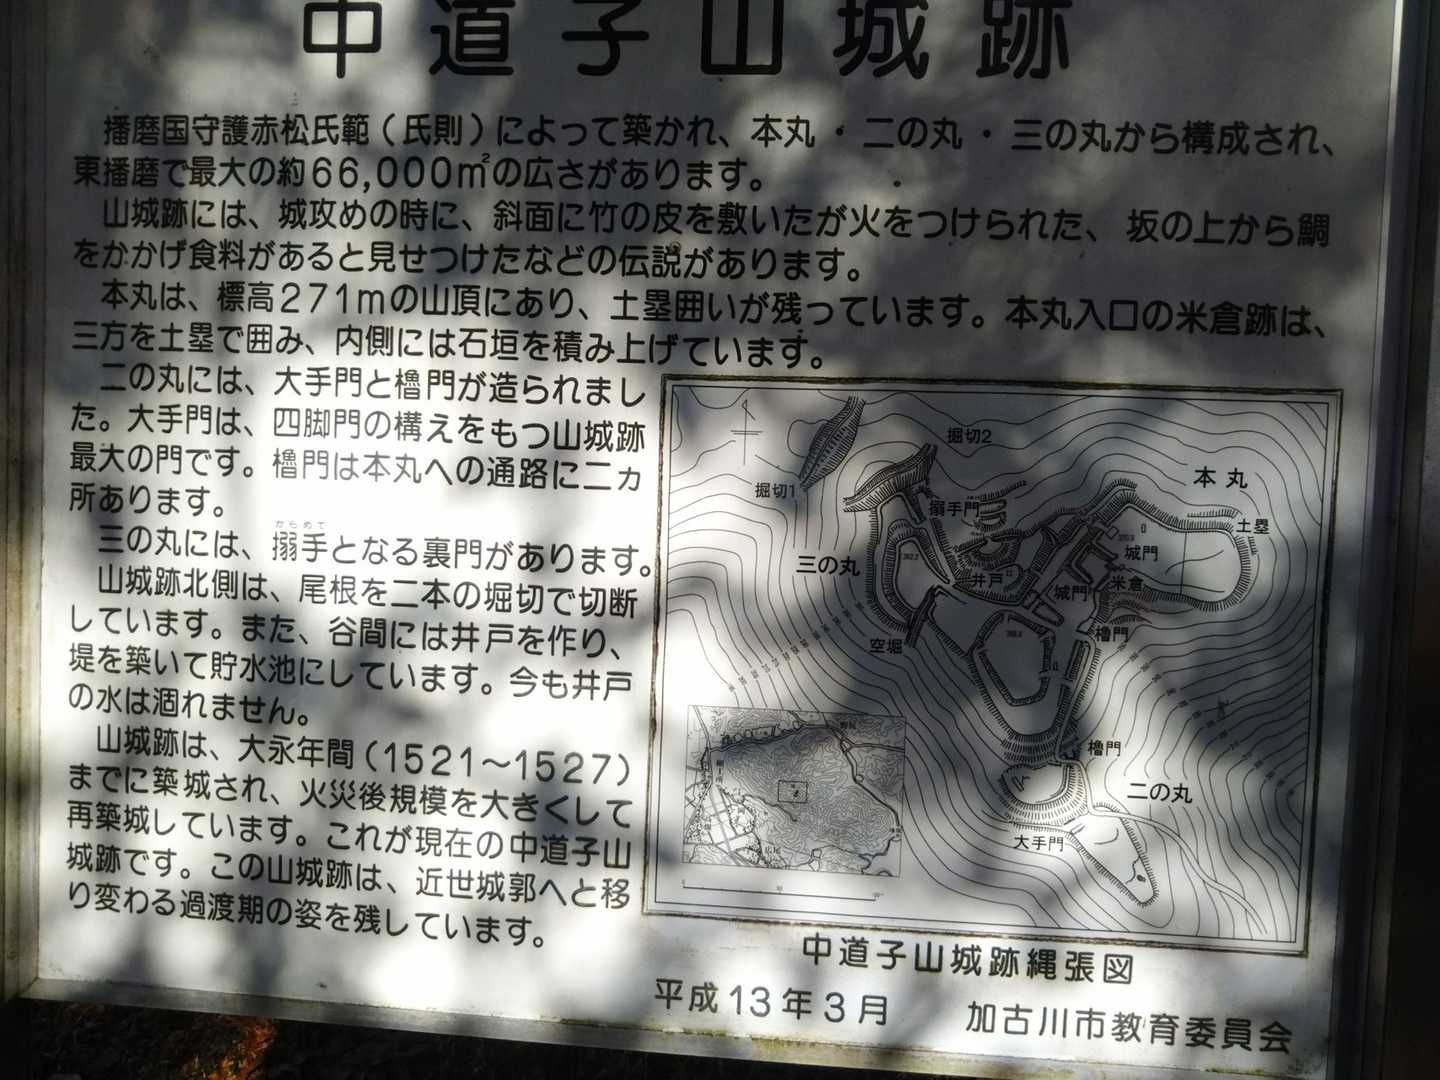 中道子山城跡
播磨国守護赤松氏範（氏則）によって築かれ、本丸・二の丸・三の丸から構成され、
東播磨で最大の約66,000㎡の広さがあります。
山城跡には、城攻めの時に、斜面に竹の皮を敷いたが火をつけられた、坂の上から鯛
をかかげ食料があると見せつけたなどの伝説があります。
本丸は、標高271mの山頂にあり、土塁囲いが残っています。本丸入口の米倉跡は、
三方を土塁で囲み、内側には石垣を積み上げています。
二の丸には、大手門と櫓門が造られまし
た。大手門は、四脚門の構えをもつ山城跡
最大の門です。櫓門は本丸への通路に二ヵ
所あります。
からめて
三の丸には、搦手となる裏門があります。
山城跡北側は、尾根を二本の堀切で切断
しています。また、谷間には井戸を作り、
堤を築いて貯水池にしています。今も井戸
の水は涸れません。
山城跡は、大永年間（1521～1527）
までに築城され、火災後規模を大きくして
再築城しています。これが現在の中道子山
城跡です。この山城跡は、近世城郭へと移
り変わる過渡期の姿を残しています。
掘切2
掘切1
本丸
搦手門
土塁
城門
三の丸
井戸
米倉
城門
櫓門
空堀
櫓門
二の丸
大手門
中道子山城跡縄張図
平成13年3月 加古川市教育委員会